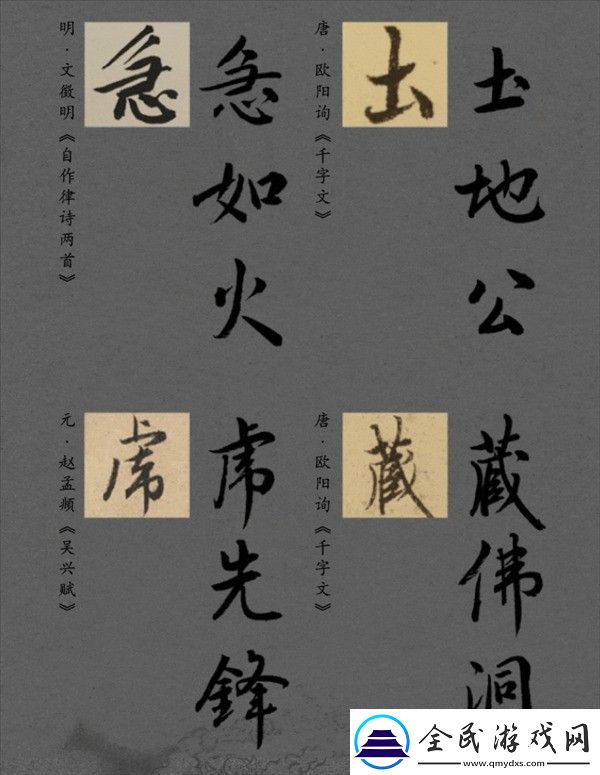 土地公
土
唐·欧阳询《千字文》
急如火
急
明·文徵明《自作律诗两首》
藏佛洞
藏
唐·欧阳询《千字文》
虎先锋
虎
元·赵孟頫《吴兴赋》
全民游戏网
www.qmydxs.com